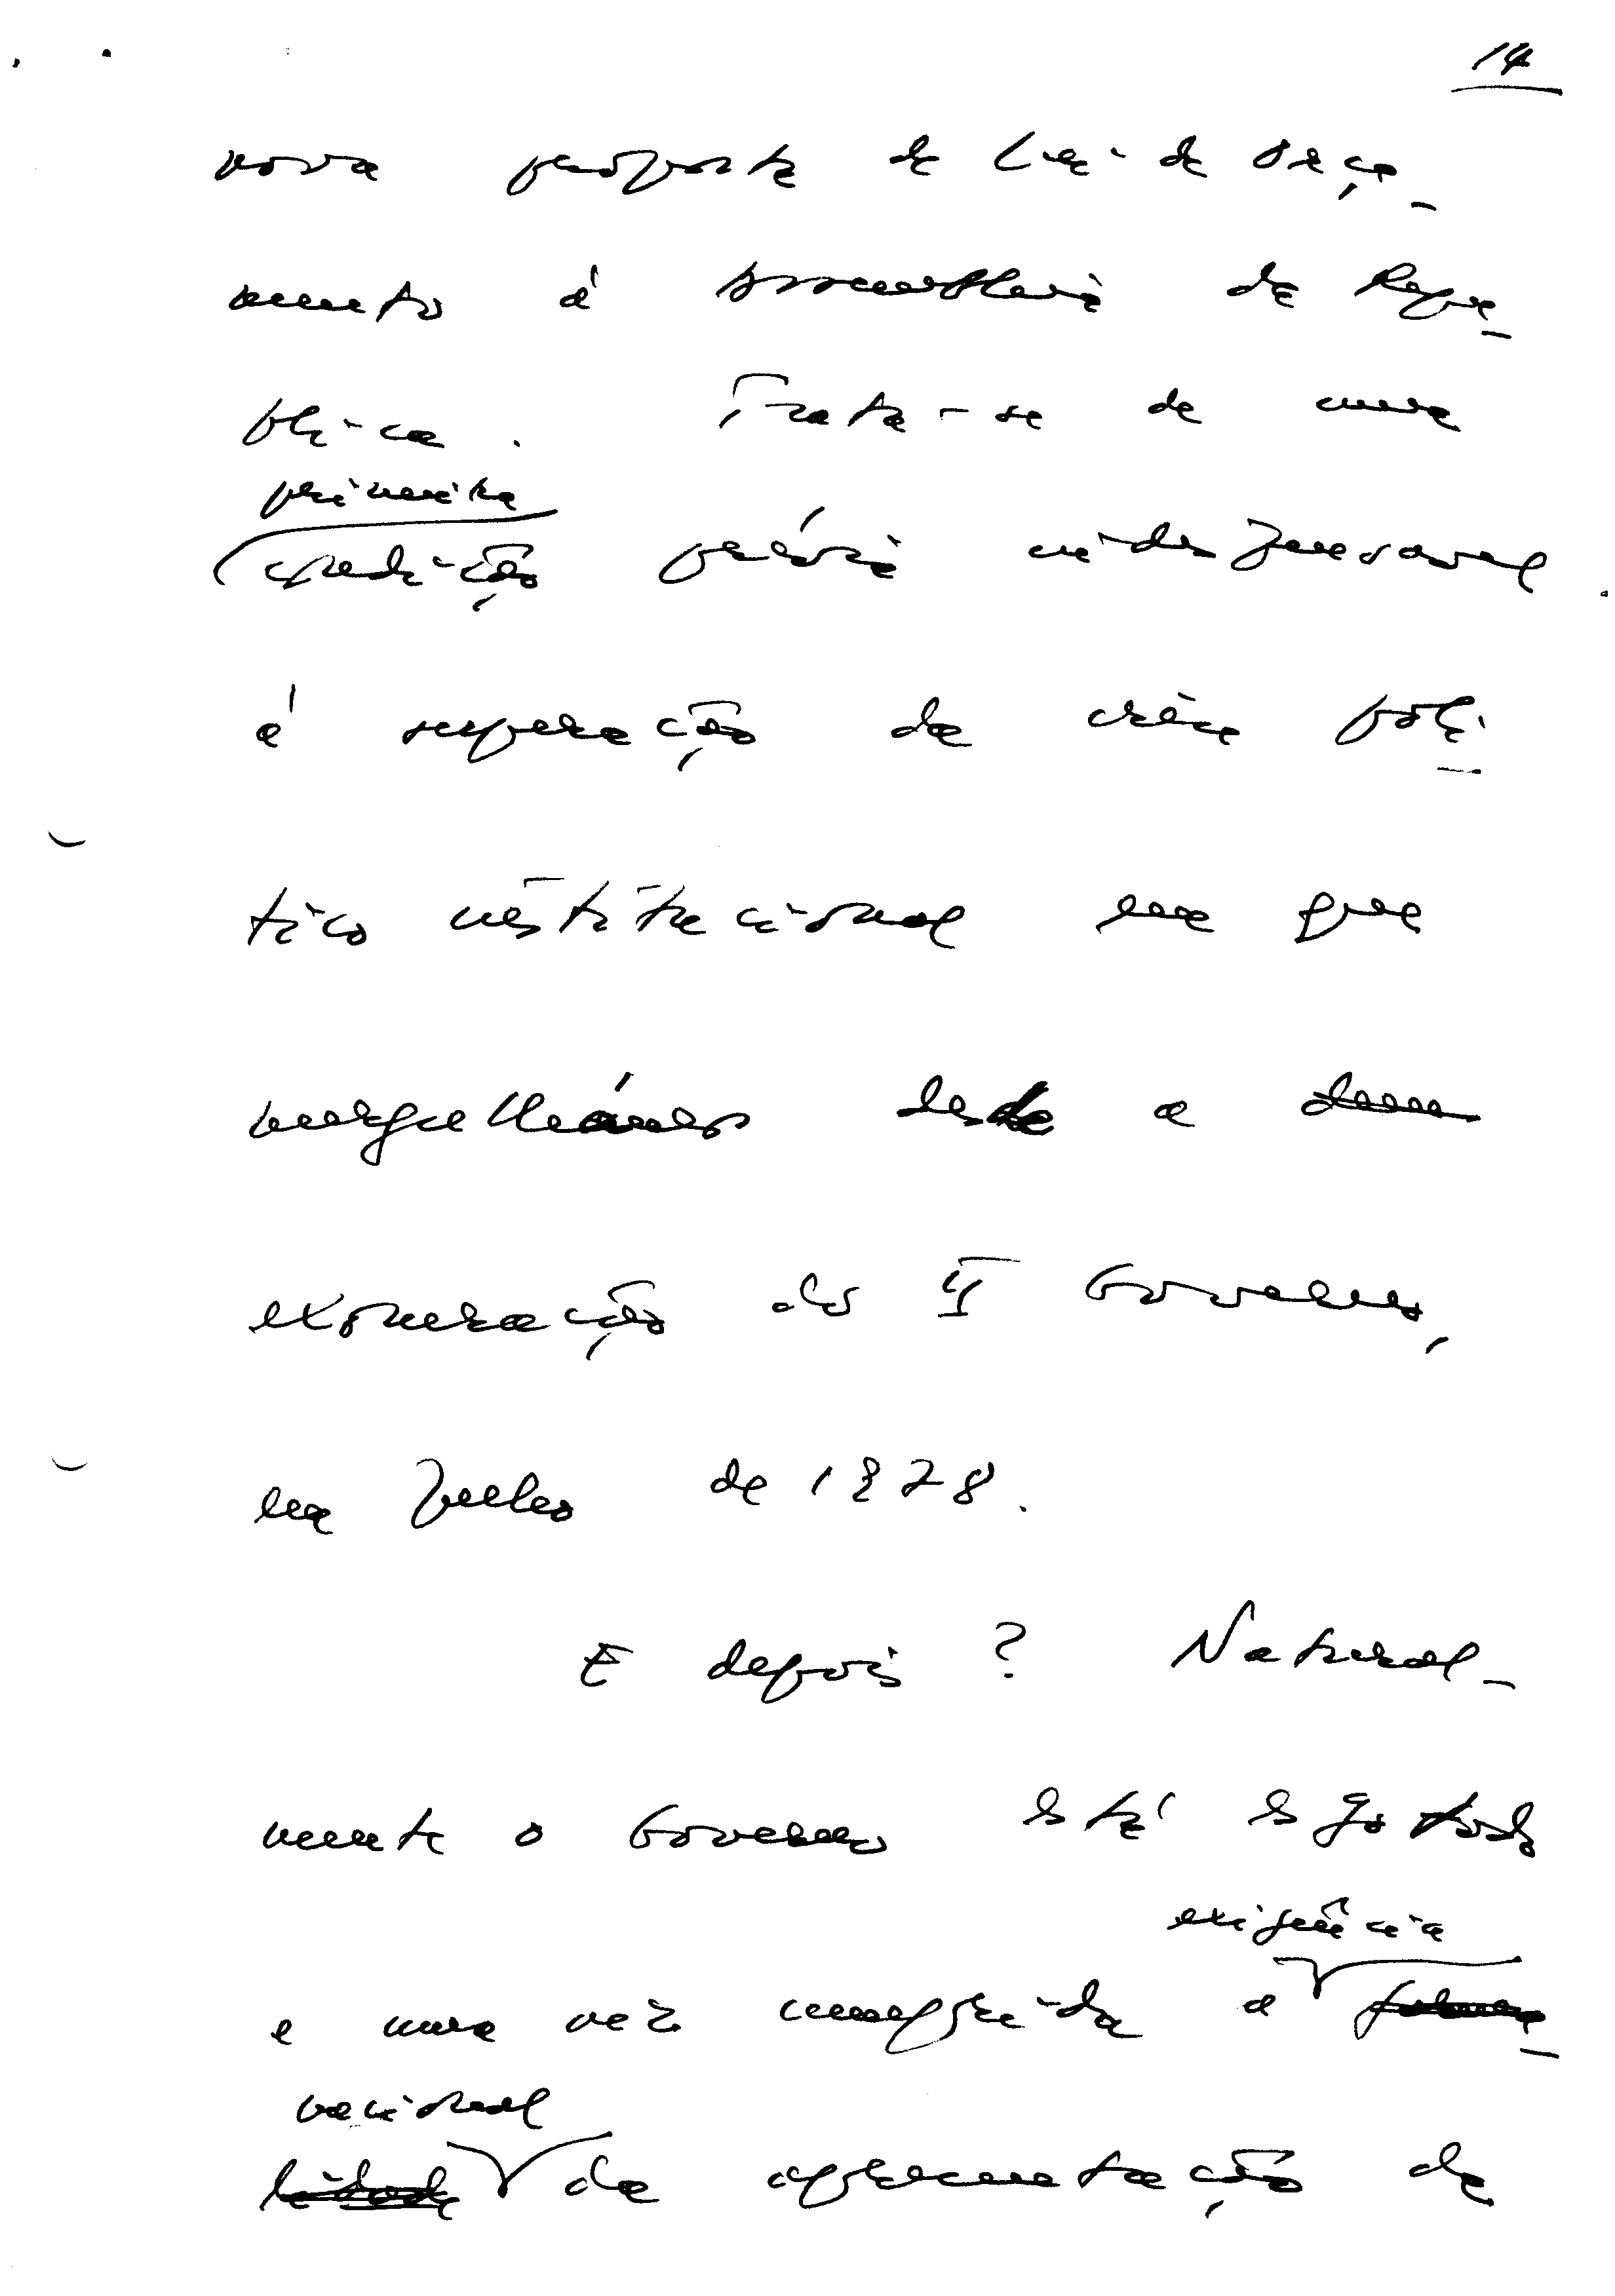 14
nova proposta de Lei de Orça_
mento à Assembleia da Repú_
blica. Trata-se de uma
primeira
condição prévia indispensável
à superação da crise polí_
tico institucional em que
mergulhámos desde a
exoneração do II Governo,
em Julho de 1978.
E depois? Natural_
mente o Governo está esgotado
exigência
e uma vez cumprida a
nacional
da apresentação da